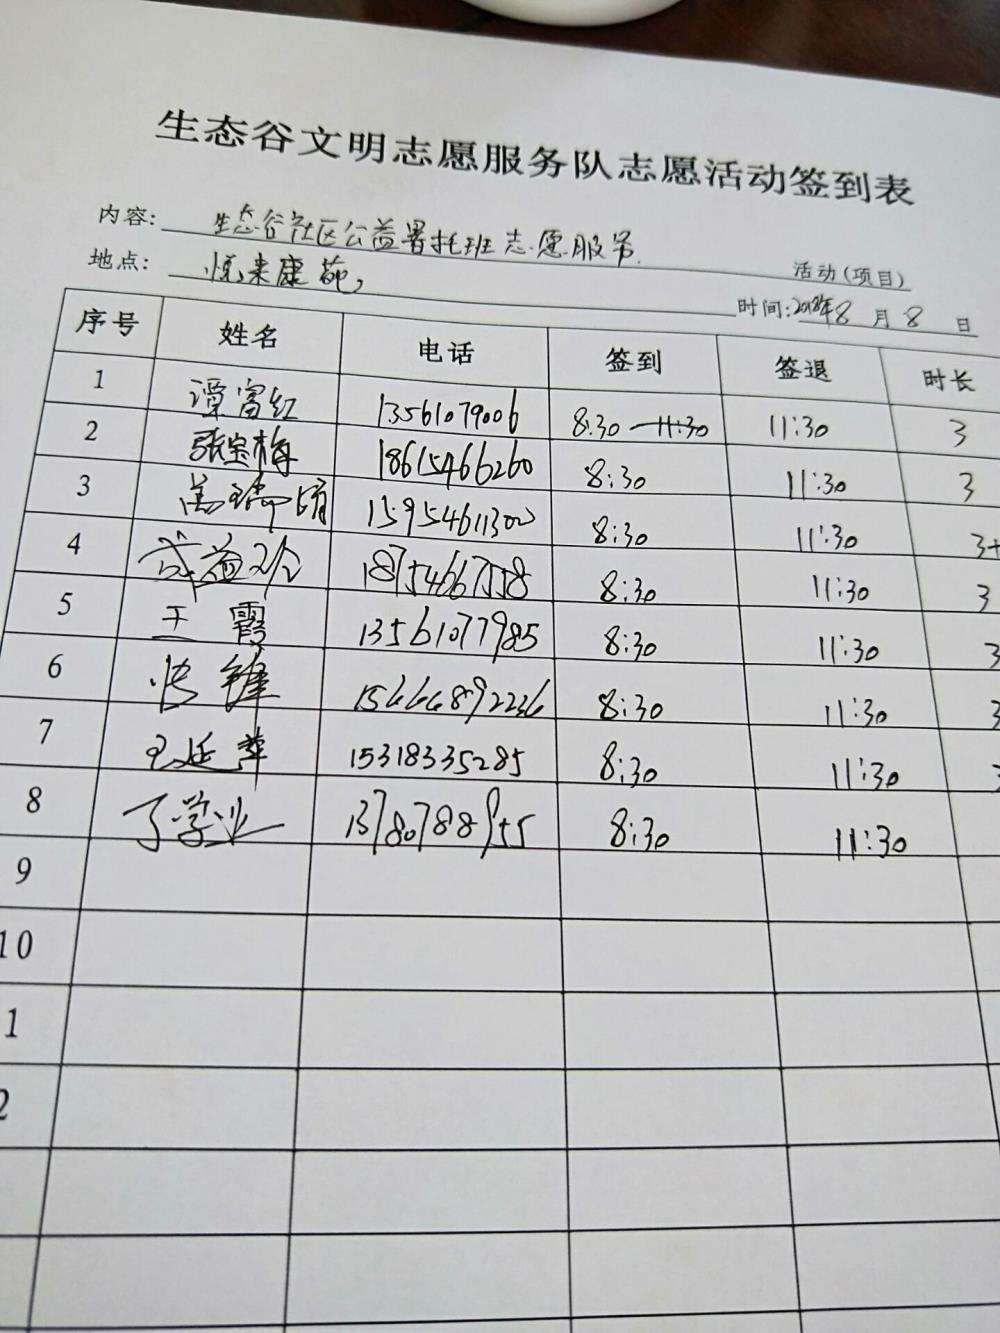 生态谷文明志愿服务队志愿活动签到表
内容: 生态谷社区公益暑托班志愿服务 活动(项目)
地点: 悦来康苑 时间: 2018年8月8日
序号 姓名 电话 签到 签退 时长
1 谭富红 13561079006 8:30 11:30 11:30 3
2 张宝梅 18615466260 8:30 11:30 3
3 15954611300 8:30 11:30 3
4 18754667558 8:30 11:30 3
5 王霞 13561077985 8:30 11:30 3
6 张锋 15666892236 8:30 11:30 3
7 王廷萍 15318335285 8:30 11:30
8 丁学业 13780788955 8:30 11:30
9
10
1
2